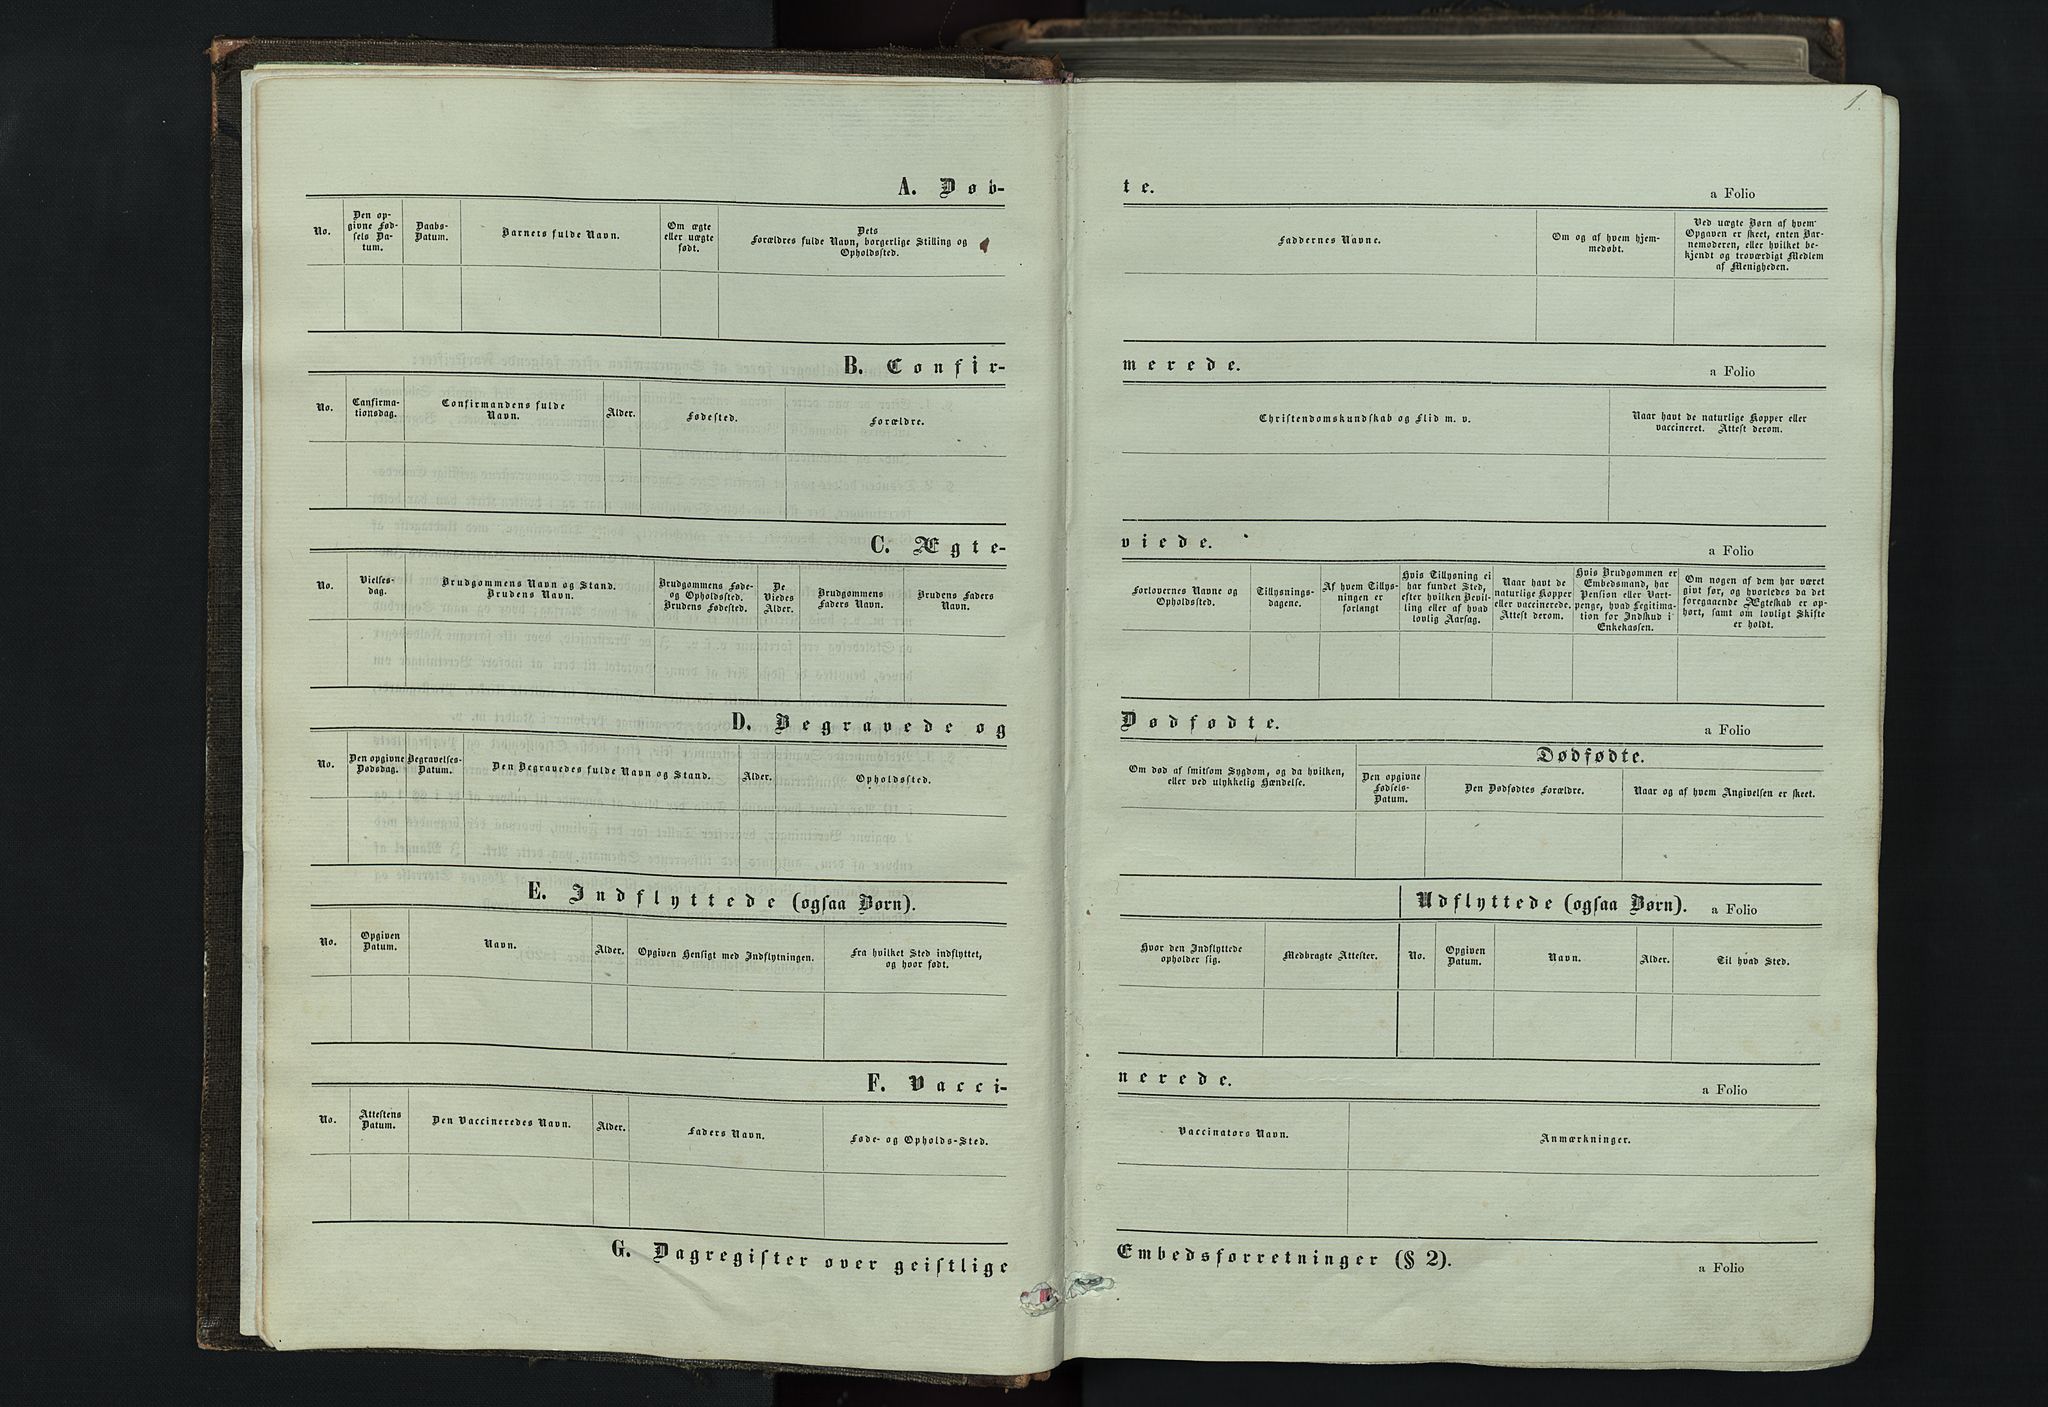 1.
A. Døb-
te.
a Folio
No.
Den op-
givne Fød-
sels Da-
tum.
Daabs-
Datum.
Barnets fulde Navn.
Om ægte
eller uægte
født.
Dets
Forældres fulde Navn, borgerlige Stilling og
Opholdssted.
Faddernes Navne.
Om og af hvem hjem-
medøbt.
Ved uægte Børn af hvem
Opgaven er skeet, enten Bar-
nemoderen, eller hvilket be-
kjendt og troværdigt Medlem
af Menigheden.
B. Confir-
merede.
a Folio
No.
Confirma-
tionsdag.
Confirmandens fulde
Navn.
Alder.
Fødested.
Forældre.
Christendomskundskab og Flid m. v.
Naar havt de naturlige Kopper eller
vaccineret. Attest derom.
C. Ægte-
viede.
a Folio
No.
Vielses-
dag.
Brudgommens Navn og Stand.
Brudens Navn.
Brudgommens Føde-
og Opholdssted.
Brudens Fødested.
De
Viedes
Alder.
Brudgommens
Faders Navn.
Brudens Faders
Navn.
Forlovernes Navne og
Opholdssted.
Tillysnings-
dagene.
Af hvem Tillys-
ningen er
forlangt
Hvis Tillysning ei
har fundet Sted,
efter hvilken Bevil-
ling eller af hvad
lovlig Aarsag.
Naar havt de
naturlige Kopper
eller vaccinerede.
Attest derom.
Hvis Brudgommen er
Embedsmand, har
Pension eller Vart-
penge, hvad Legitima-
tion for Indskud i
Enkekassen.
Om nogen af dem har været
givt før, og hvorledes da det
foregaaende Ægteskab er op-
hørt, samt om lovligt Skifte
er holdt.
D. Begravede og
Dødfødte.
a Folio
No.
Den opgivne
Dødsdag.
Begravelses-
Datum.
Den Begravedes fulde Navn og Stand.
Alder.
Opholdssted.
Om død af smitsom Sygdom, og da hvilken,
eller ved ulykkelig Hændelse.
Dødfødte.
Den opgivne
Fødsels-
Datum.
Den Dødfødtes Forældre.
Naar og af hvem Angivelsen er skeet.
E. Indflyttede (ogsaa Børn).
Udflyttede (ogsaa Børn).
a Folio
No.
Opgiven
Datum.
Navn.
Alder.
Opgiven Hensigt med Indflytningen.
Fra hvilket Sted indflyttet,
og hvor født.
Hvor den Indflyttede
opholder sig.
Medbragte Attester.
No.
Opgiven
Datum.
Navn.
Alder.
Til hvad Sted.
F. Vacci-
nerede.
a Folio
No.
Attestens
Datum.
Den Vaccineredes Navn.
Alder.
Faders Navn.
Føde- og Opholds-Sted.
Vaccinators Navn.
Anmærkninger.
G. Dagregister over geistlige
Embedsforretninger (§ 2).
a Folio